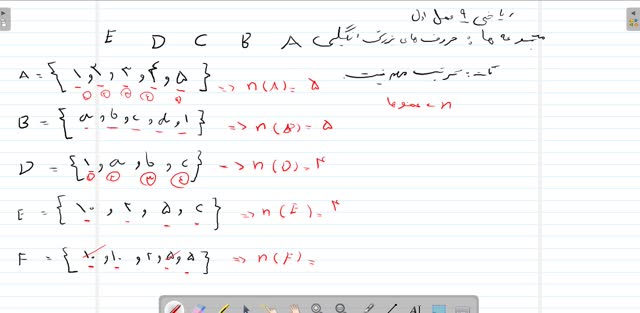 ریاضی ۹ فصل اول
مجموعه ها: حروف های بزرگ انگلیسی A B C D E
نکته: ترتیب مهم نیست
A = {۱, ۲, ۳, ۴, ۵} => n(A) = ۵
n = عضوها
B = {a, b, c, d, 1} => n(B) = ۵
D = {۱, a, b, c} => n(D) = ۴
E = {۱۰, ۲, ۵, c} => n(E) = ۴
F = {۱۰, ۱۰, ۲, ۵, ۵} => n(F) =